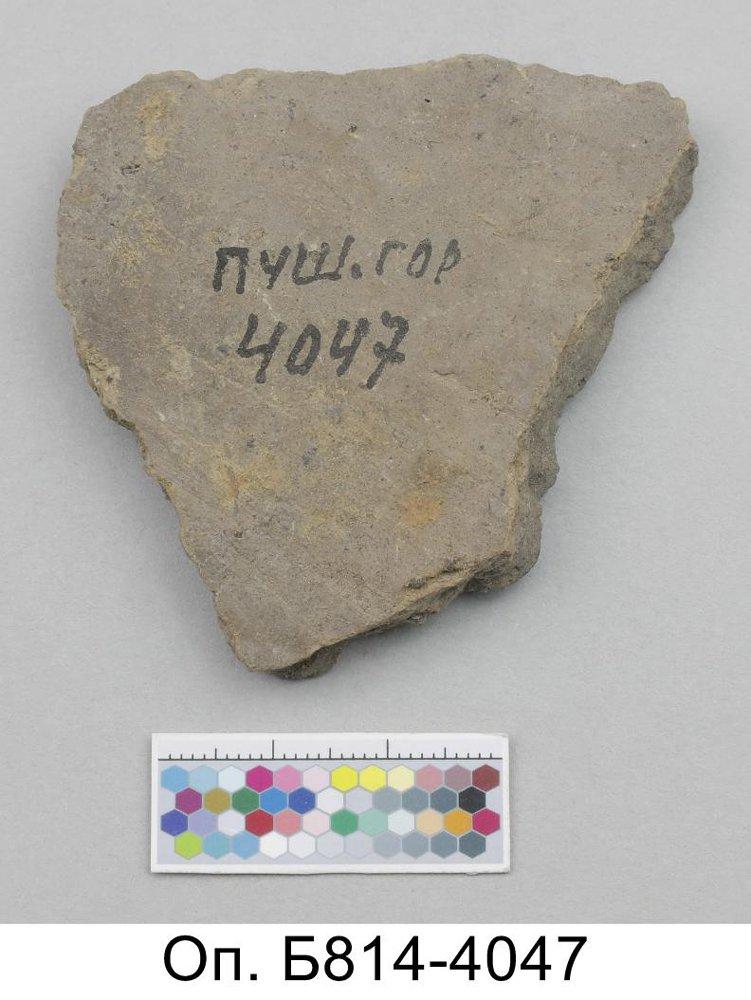 ПУШ.ГОР
4047
Оп. Б814-4047